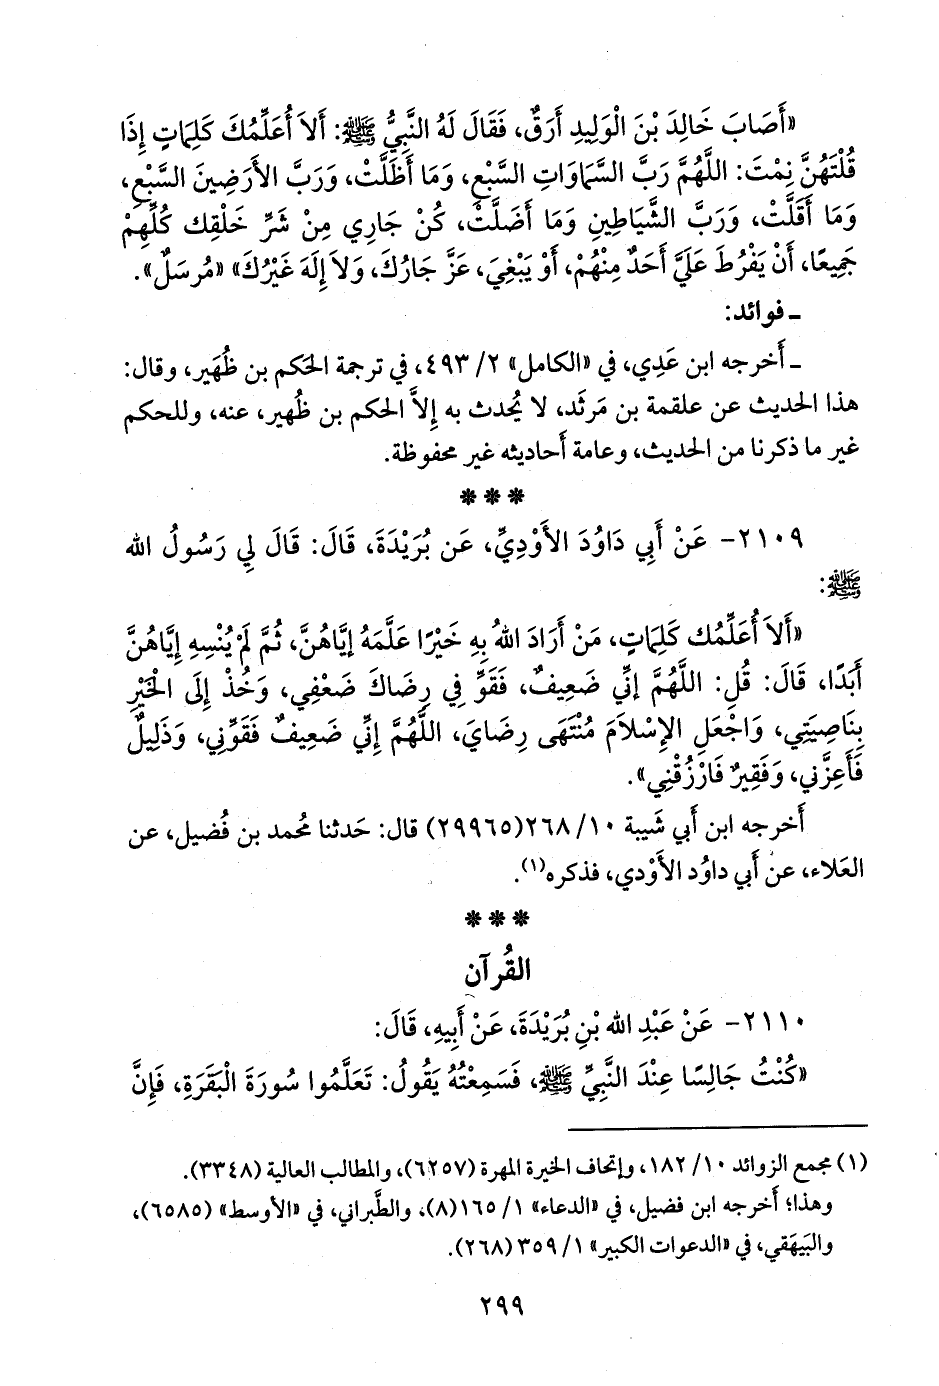 «أَصَابَ خَالِدَ بْنَ الْوَلِيدِ أَرَقٌ، فَقَالَ لَهُ النَّبِيُّ ﷺ: أَلاَ أُعَلِّمُكَ كَلِمَاتٍ إِذَا
قُلْتَهُنَّ نِمْتَ: اللَّهُمَّ رَبَّ السَّمَاوَاتِ السَّبْعِ، وَمَا أَظَلَّتْ، وَرَبَّ الأَرَضِينَ السَّبْعِ،
وَمَا أَقَلَّتْ، وَرَبَّ الشَّيَاطِينِ وَمَا أَضَلَّتْ، كُنْ جَارِي مِنْ شَرِّ خَلْقِك كُلِّهِمْ
جَمِيعًا، أَنْ يَفْرُطَ عَلَيَّ أَحَدٌ مِنْهُمْ، أَوْ يَبْغِيَ، عَزَّ جَارُكَ، وَلاَ إِلَهَ غَيْرُكَ» «مُرسَلٌ».
ـ فوائد:
ـ أَخرجه ابن عَدِي، في «الكامل» ٢/ ٤٩٣، في ترجمة الحَكم بن ظُهَير، وقال:
هذا الحديث عن علقمة بن مَرثَد، لا يُحدث به إِلاَّ الحكم بن ظُهير، عنه، وللحكم
غير ما ذكرنا من الحديث، وعامة أَحاديثه غير محفوظة.
* * *
٢١٠٩- عَنْ أَبِي دَاوُدَ الأَوْدِيِّ، عَن بُرَيْدَةَ، قَالَ: قَالَ لِي رَسُولُ الله
ﷺ:
«أَلاَ أُعَلِّمُك كَلِمَاتٍ، مَنْ أَرَادَ اللهُ بِهِ خَيْرًا عَلَّمَهُ إِيَّاهُنَّ، ثُمَّ لَمْ يُنْسِهِ إِيَّاهُنَّ
أَبَدًا، قَالَ: قُلِ: اللَّهُمَّ إِنِّي ضَعِيفٌ، فَقَوِّ فِي رِضَاكَ ضَعْفِي، وَخُذْ إِلَى الْخَيْرِ
بِنَاصِيَتِي، وَاجْعَلِ الإِسْلاَمَ مُنْتَهَى رِضَايَ، اللَّهُمَّ إِنِّي ضَعِيفٌ فَقَوِّنِي، وَذَلِيلٌ
فَأَعِزَّنِي، وَفَقِيرٌ فَارْزُقْنِي».
أَخرجه ابن أَبي شَيبة ١٠/ ٢٦٨(٢٩٩٦٥) قال: حَدثنا مُحمد بن فُضيل، عن
العَلاء، عن أَبي داوُد الأَوْدي، فذكره(١).
* * *
القُرآن
٢١١٠- عَنْ عَبْدِ الله بْنِ بُرَيْدَةَ، عَنْ أَبِيهِ، قَالَ:
«كُنْتُ جَالِسًا عِنْدَ النَّبِيِّ ﷺ، فَسَمِعْتُهُ يَقُولُ: تَعَلَّمُوا سُورَةَ الْبَقَرَةِ، فَإِنَّ
(١) مجمع الزوائد ١٠/ ١٨٢، وإتحاف الخيرة المهرة (٦٢٥٧)، والمطالب العالية (٣٣٤٨).
وهذا؛ أَخرجه ابن فضيل، في «الدعاء» ١/ ١٦٥(٨)، والطَّبراني، في «الأوسط» (٦٥٨٥)،
والبَيهَقي، في «الدعوات الكبير» ١/ ٣٥٩(٢٦٨).
٢٩٩